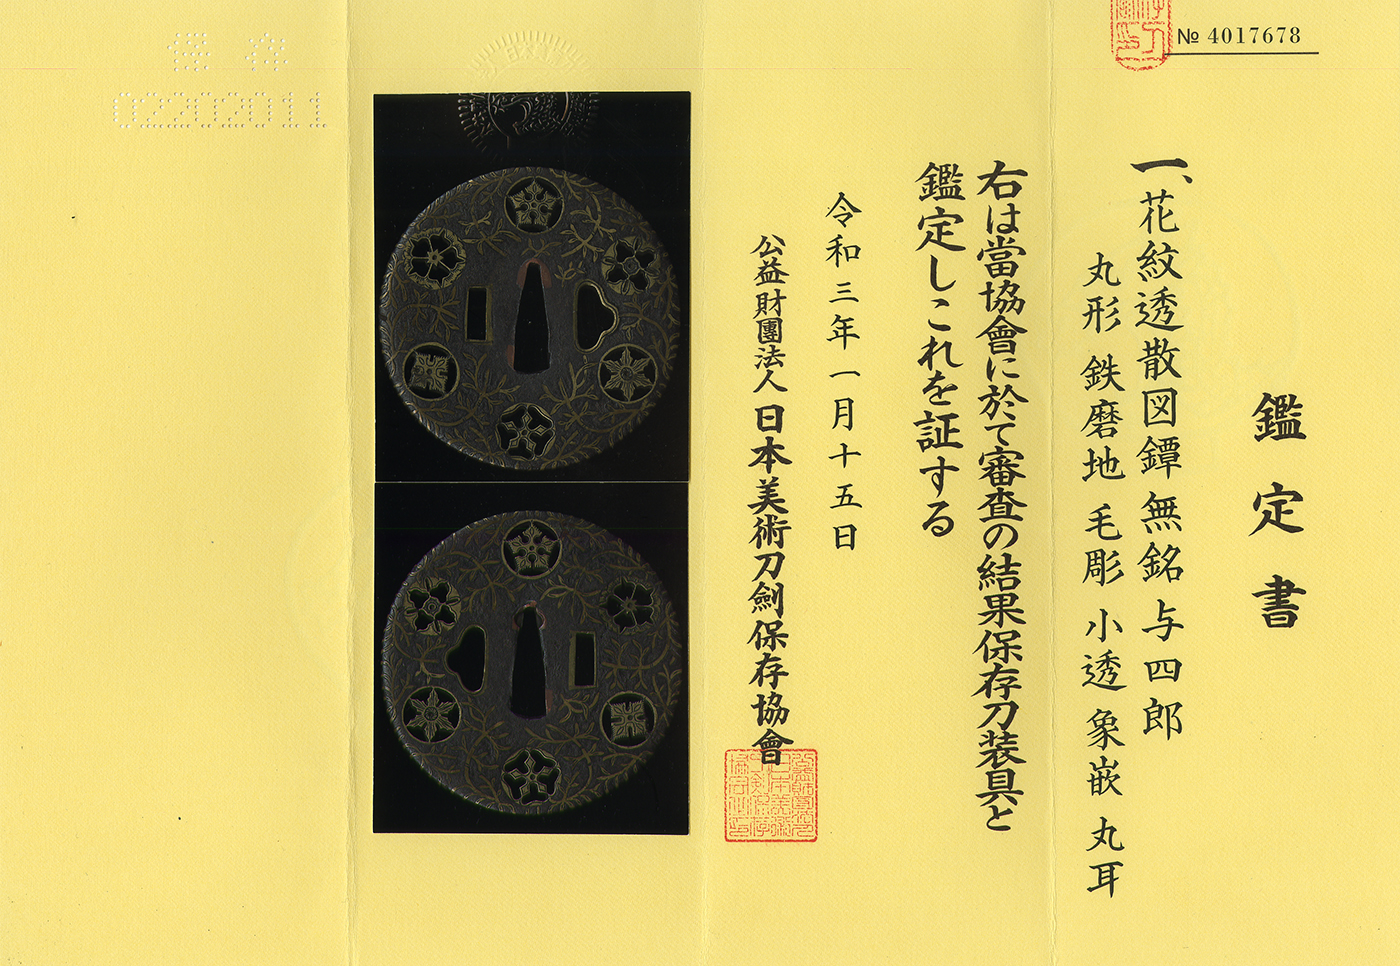 № 4017678
鑑定書
一、花紋透散図鐔 無銘 与四郎
丸形 鉄磨地 毛彫 小透 象嵌 丸耳
右は當協會に於て審査の結果保存刀装具と
鑑定しこれを証する
令和三年一月十五日
公益財團法人 日本美術刀劍保存協會
保存
02202011